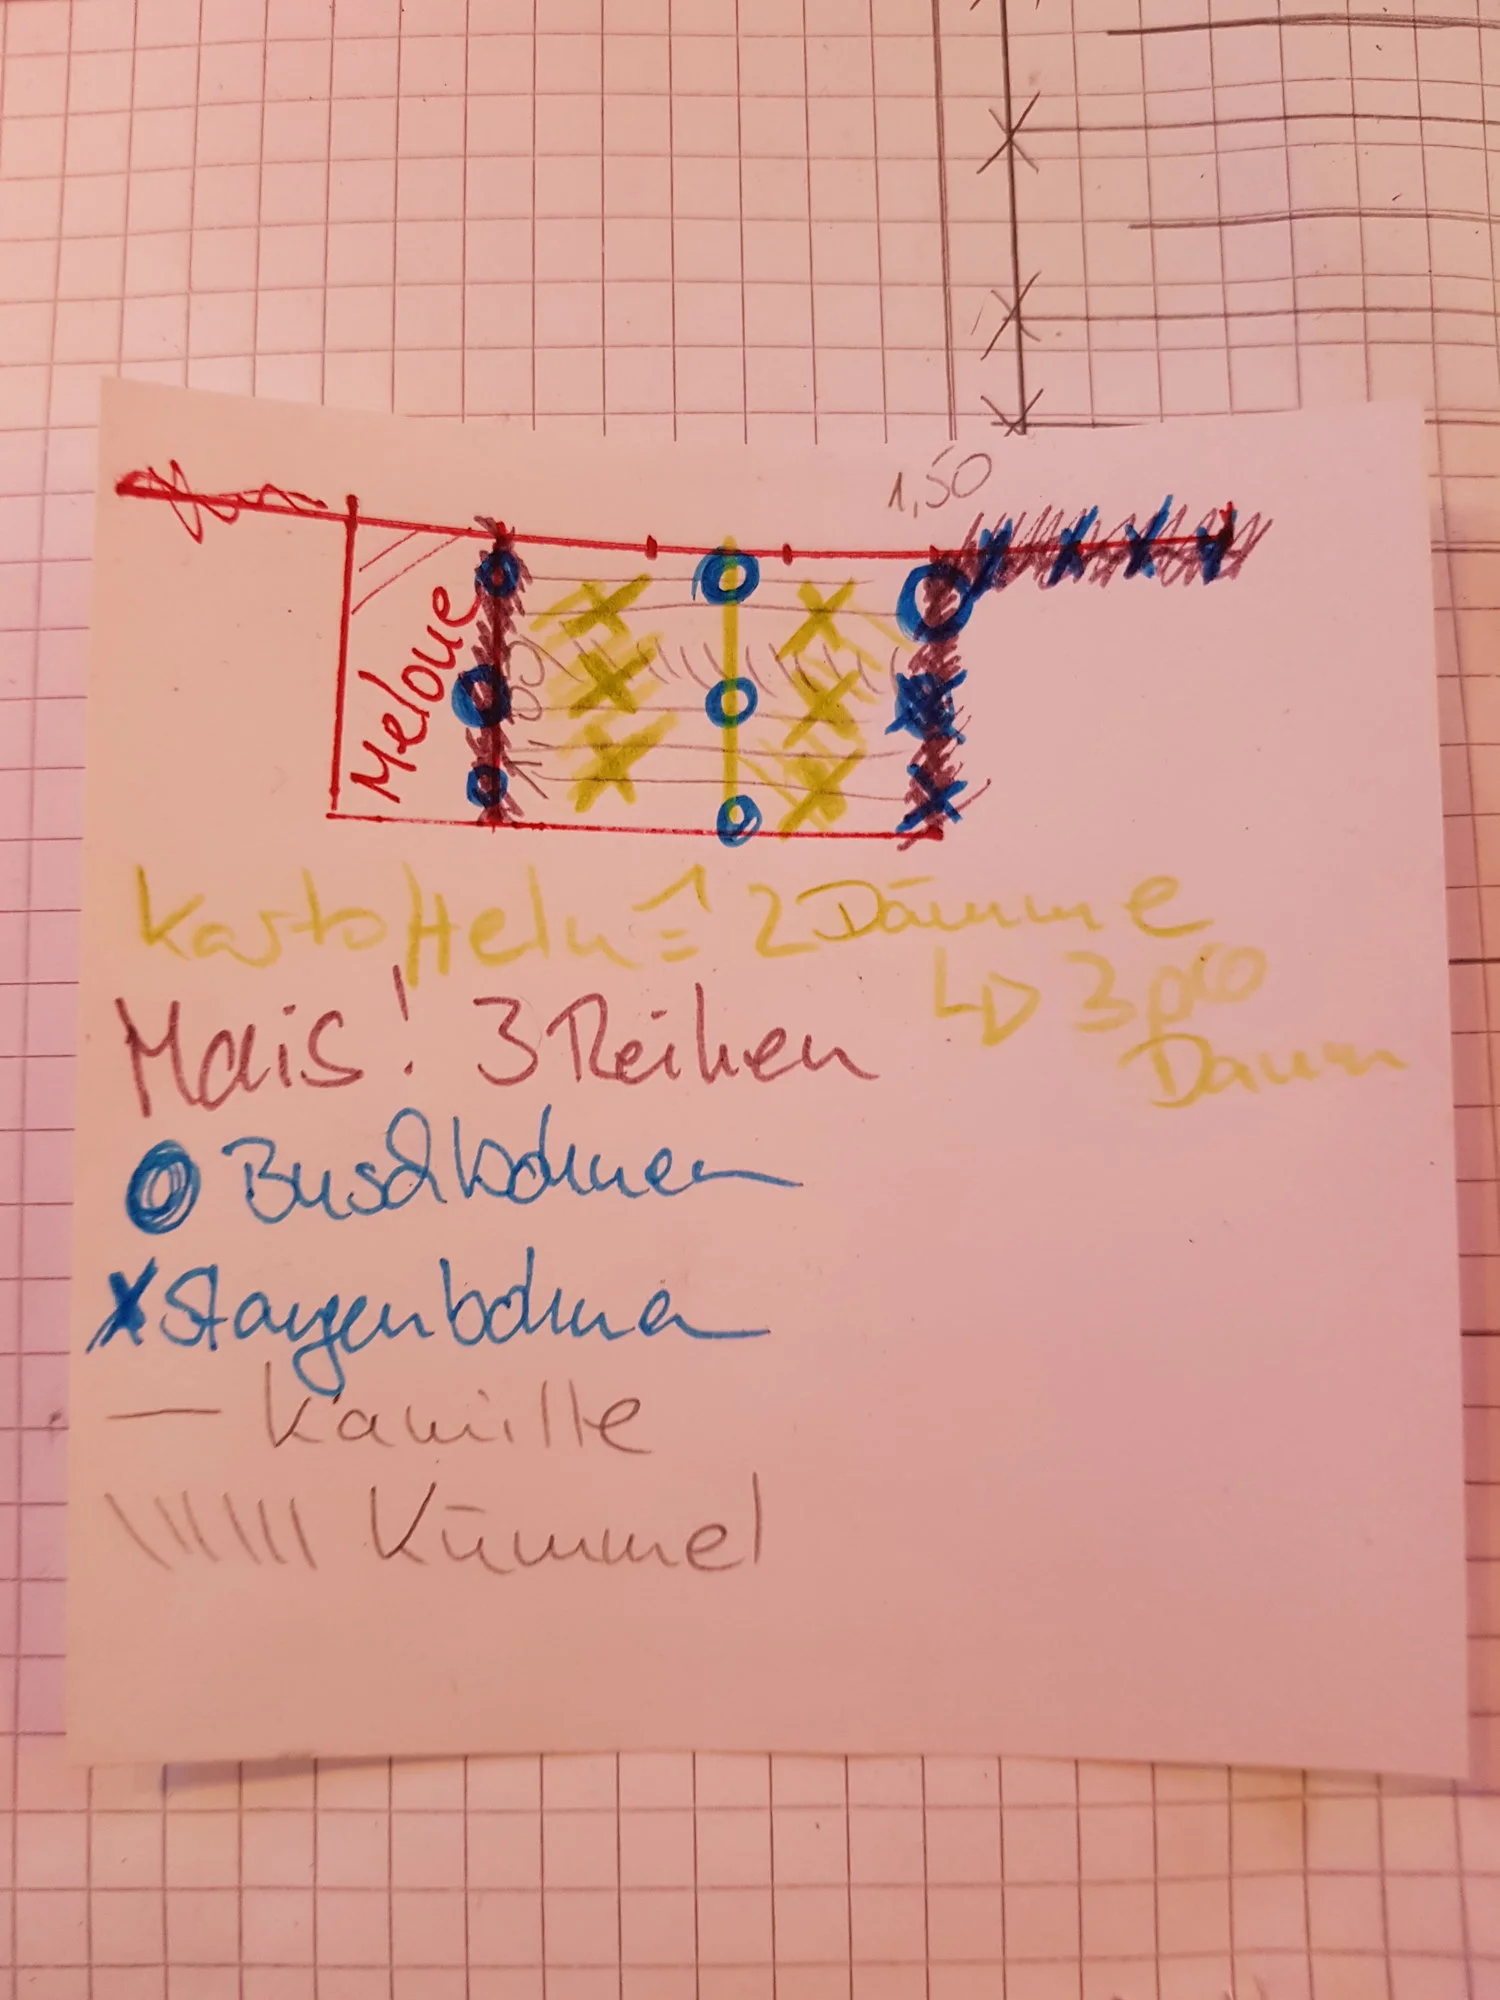 1,50
Melone
1,00
Kartoffeln ≙ 2 Dämme
↳ 3 pro Damm
Mais! 3 Reihen
Buschbohnen
x Stangenbohnen
— Kamille
\\\||| Kümmel